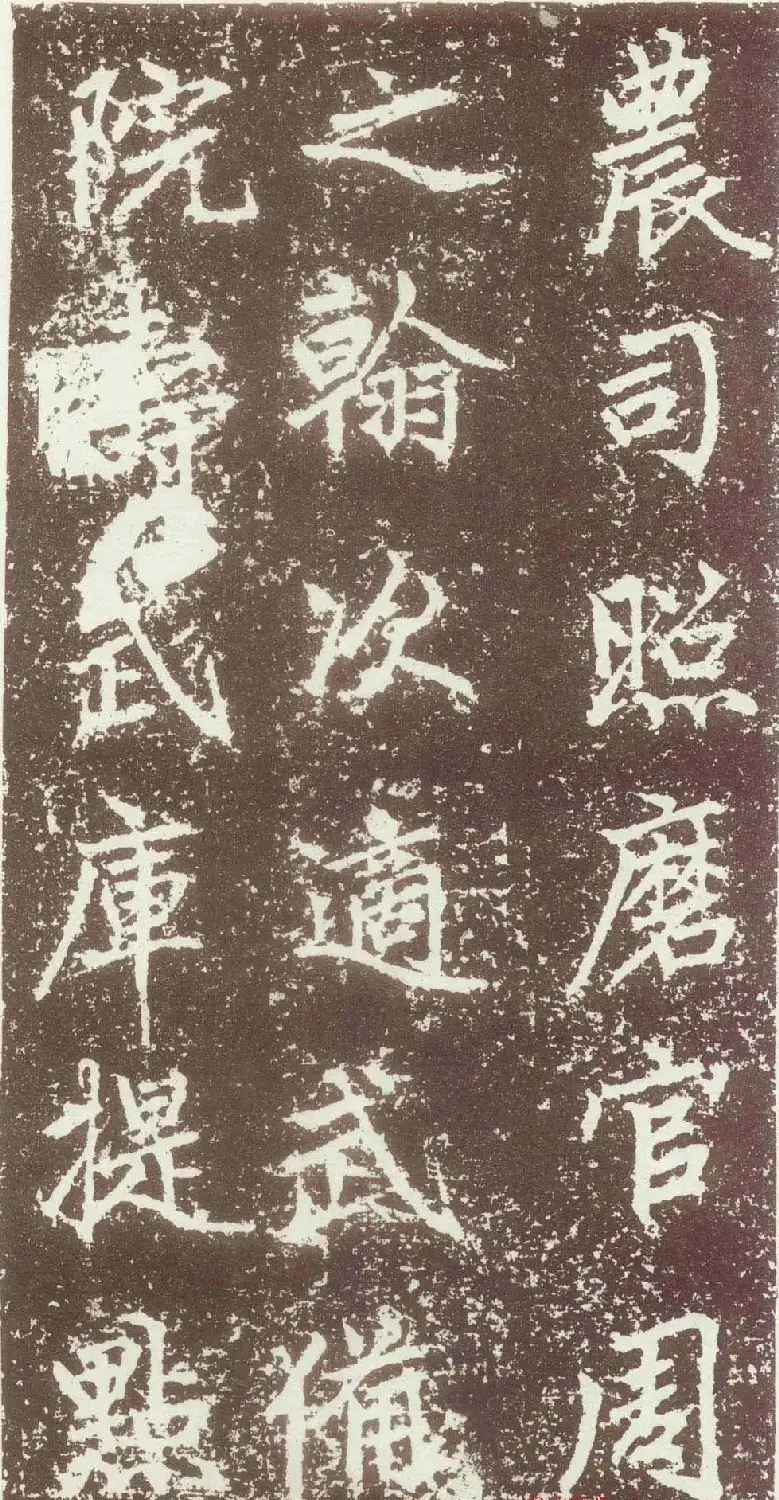 農司照磨官周
之翰次適武備
院壽武庫提點